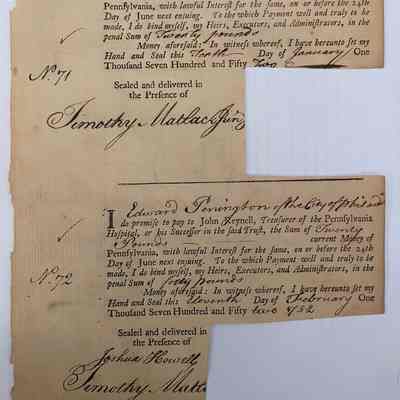 Pennsylvania, with lawful Interest for the same, on or before the 24th
Day of June next ensuing. To the which Payment well and truly to be
made, I do bind myself, my Heirs, Executors, and Administrators, in the
penal Sum of Twenty pounds
Money aforesaid: In witness whereof, I have hereunto set my
Hand and Seal this Day of January One
No. 71
Thousand Seven Hundred and Fifty Two
Sealed and delivered in
the Presence of
Timothy Matlack Junr
I Edward Penington of the City of Philad
do promise to pay to John Reynell, Treasurer of the Pennsylvania
Hospital, or his Successor in the said Trust, the Sum of Twenty
Pounds current Money of
Pennsylvania, with lawful Interest for the same, on or before the 24th
Day of June next ensuing. To the which Payment well and truly to be
No. 72
made, I do bind myself, my Heirs, Executors, and Administrators, in the
penal Sum of forty pounds
Money aforesaid: In witness whereof, I have hereunto set my
Hand and Seal this Eleventh Day of February One
Thousand Seven Hundred and Fifty two 1752
Sealed and delivered in
the Presence of
Joshua Howell
Timothy Matla